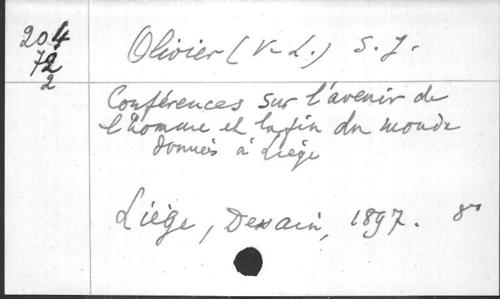 204
72
2
Olivier (V-L.) S. J.
Conférences sur l'avenir de
l'homme et la fin du monde
données à Liége
Liége, Dessain, 1897. 8°